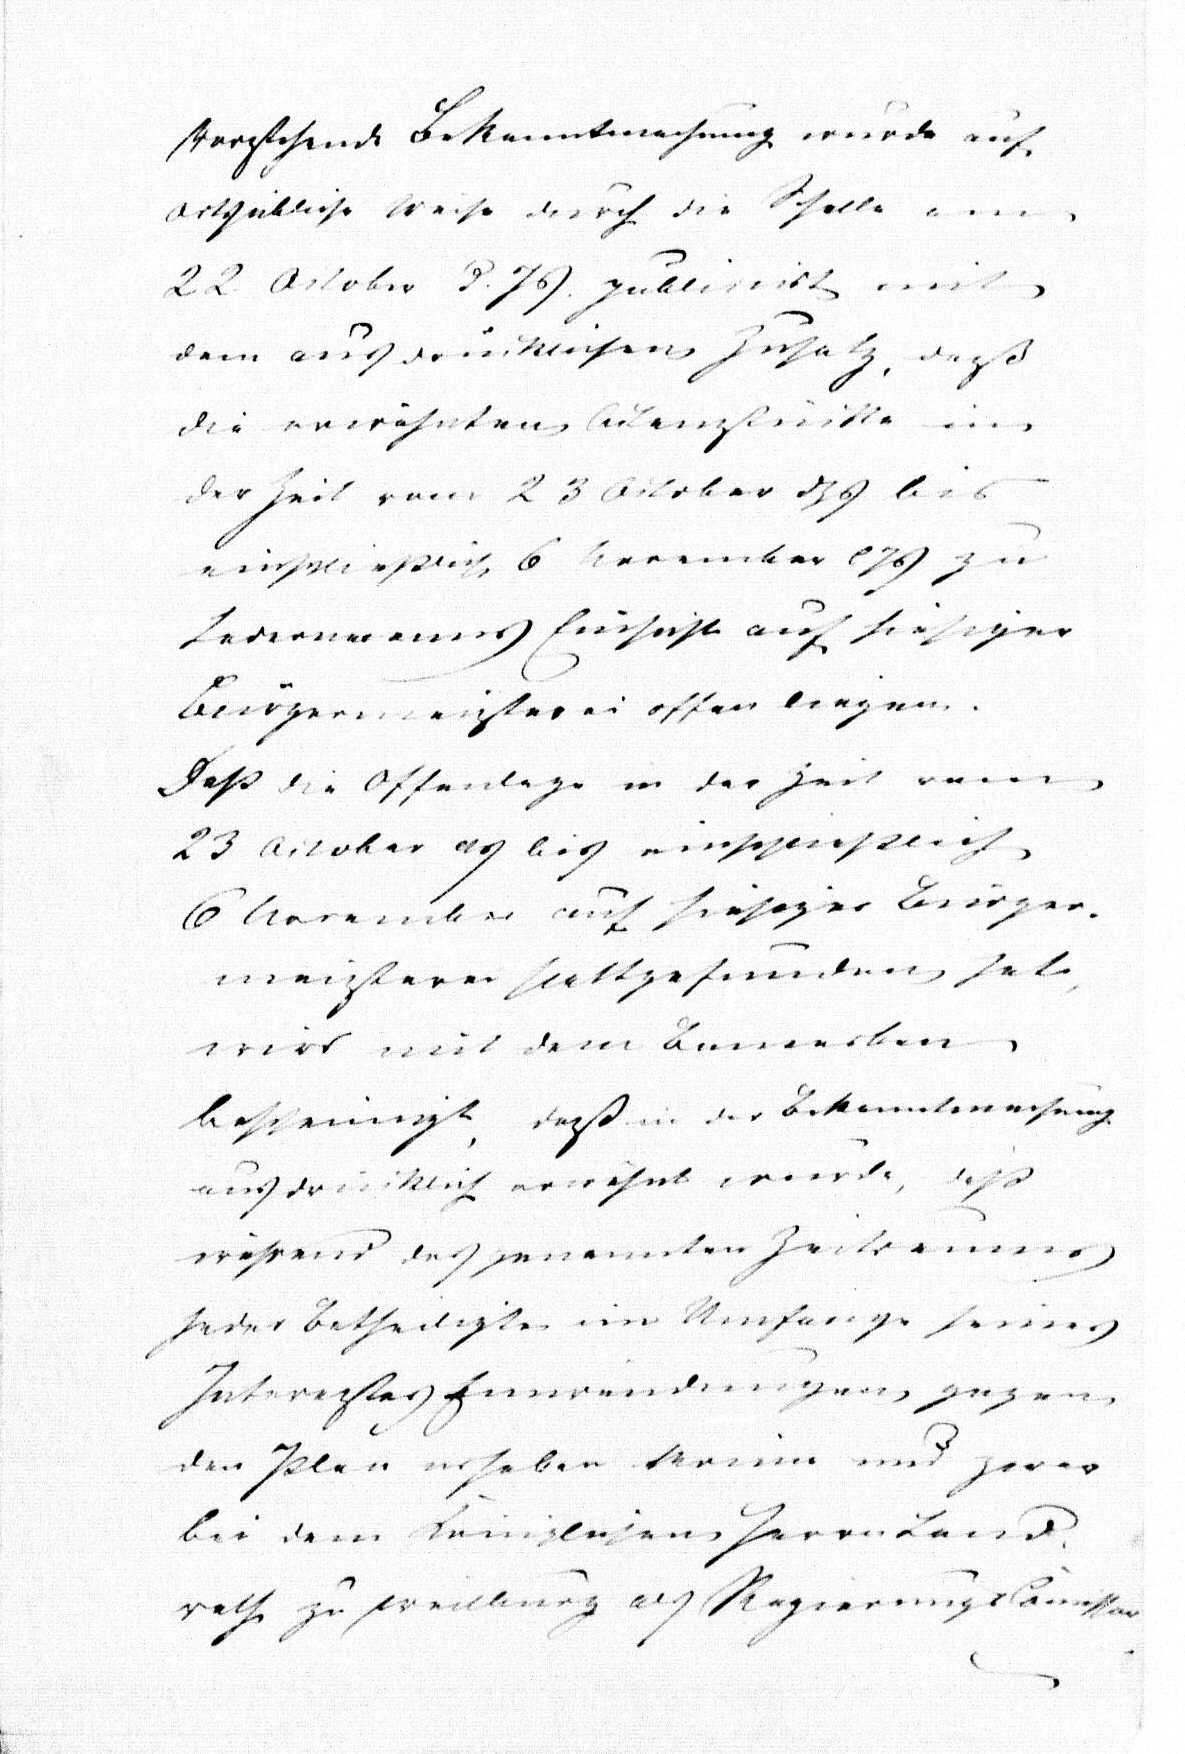 Vorstehende Bekanntmachung wurde auf
ortsübliche Weise durch die Schelle am
22 October d. Js. publicirt mit
dem ausdrücklichen Zusatz, daß
die erwähnten Actenstücke in
der Zeit vom 23 October ds bis
einschließlich 6 November ds zu
Jedermanns Einsicht auf hiesiger
Bürgermeisterei offen liegen.
Daß die Offenlage in der Zeit vom
23 October ds bis einschließlich
6 November auf hiesiger Bürger-
meisterei stattgefunden hat,
wird mit dem Bemerken
bescheinigt, daß in der Bekanntmachung
ausdrücklich erwähnt wurde, daß
während des genannten Zeitraumes
jeder Betheiligte im Umfange seines
Interesses Einwendungen gegen
den Plan erheben könne und zwar
bei dem Königlichen Herrn Land-
rath zu Weilburg als Regierungs Commissar